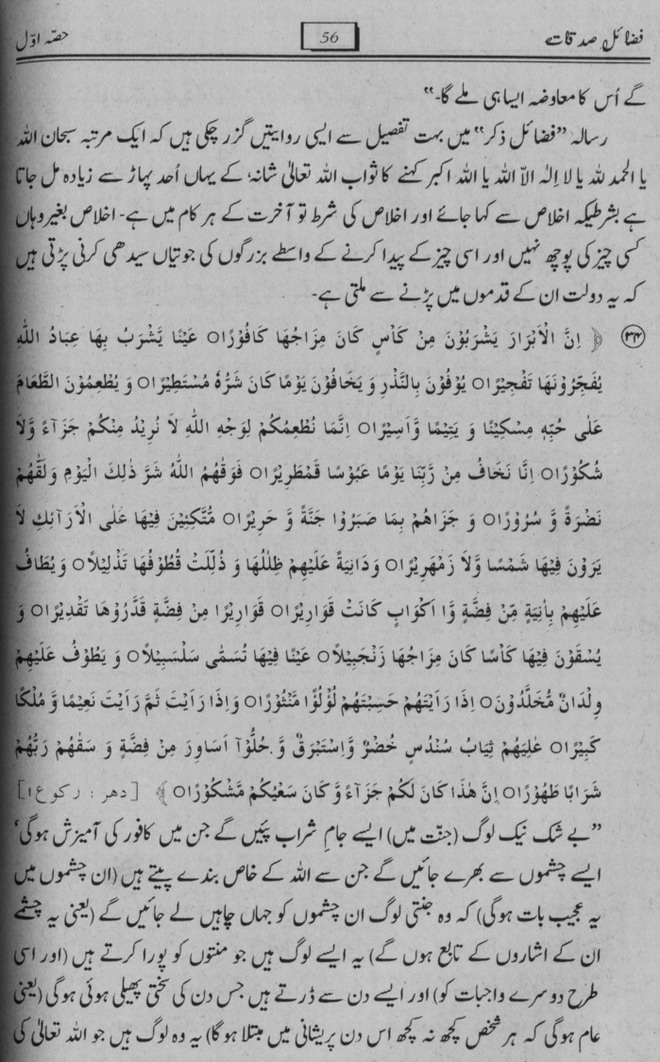 فضائل صدقات 56 حصّہ اوّل
گے اُس کا معاوضہ ایسا ہی ملے گا۔“
رسالہ ”فضائل ذکر“ میں بہت تفصیل سے ایسی روایتیں گزر چکی ہیں کہ ایک مرتبہ سبحان اللہ
یا الحمد للہ یا لا الٰہ الاّ اللہ یا اللہ اکبر کہنے کا ثواب اللہ تعالیٰ شانہٗ کے یہاں اُحد پہاڑ سے زیادہ مل جاتا
ہے بشرطیکہ اخلاص سے کہا جائے اور اخلاص کی شرط تو آخرت کے ہر کام میں ہے۔ اخلاص بغیر وہاں
کسی چیز کی پوچھ نہیں اور اسی چیز کے پیدا کرنے کے واسطے بزرگوں کی جوتیاں سیدھی کرنی پڑتی ہیں
کہ یہ دولت ان کے قدموں میں پڑنے سے ملتی ہے۔
﴿ اِنَّ الْاَبْرَارَ يَشْرَبُوْنَ مِنْ كَاْسٍ كَانَ مِزَاجُهَا كَافُوْرًا○ عَيْنًا يَّشْرَبُ بِهَا عِبَادُ اللّٰهِ
يُفَجِّرُوْنَهَا تَفْجِيْرًا○ يُوْفُوْنَ بِالنَّذْرِ وَ يَخَافُوْنَ يَوْمًا كَانَ شَرُّهٗ مُسْتَطِيْرًا○ وَ يُطْعِمُوْنَ الطَّعَامَ
عَلٰى حُبِّهٖ مِسْكِيْنًا وَ يَتِيْمًا وَّاَسِيْرًا○ اِنَّمَا نُطْعِمُكُمْ لِوَجْهِ اللّٰهِ لَا نُرِيْدُ مِنْكُمْ جَزَآءً وَّلَا
شُكُوْرًا○ اِنَّا نَخَافُ مِنْ رَّبِّنَا يَوْمًا عَبُوْسًا قَمْطَرِيْرًا○ فَوَقٰهُمُ اللّٰهُ شَرَّ ذٰلِكَ الْيَوْمِ وَلَقّٰهُمْ
نَضْرَةً وَّ سُرُوْرًا○ وَ جَزَاهُمْ بِمَا صَبَرُوْا جَنَّةً وَّ حَرِيْرًا○ مُّتَّكِئِيْنَ فِيْهَا عَلَى الْاَرَآئِكِ لَا
يَرَوْنَ فِيْهَا شَمْسًا وَّلَا زَمْهَرِيْرًا○ وَدَانِيَةً عَلَيْهِمْ ظِلٰلُهَا وَ ذُلِّلَتْ قُطُوْفُهَا تَذْلِيْلًا○ وَ يُطَافُ
عَلَيْهِمْ بِاٰنِيَةٍ مِّنْ فِضَّةٍ وَّا اَكْوَابٍ كَانَتْ قَوَارِيْرًا○ قَوَارِيْرَا مِنْ فِضَّةٍ قَدَّرُوْهَا تَقْدِيْرًا○ وَ
يُسْقَوْنَ فِيْهَا كَاْسًا كَانَ مِزَاجُهَا زَنْجَبِيْلًا○ عَيْنًا فِيْهَا تُسَمّٰى سَلْسَبِيْلًا○ وَ يَطُوْفُ عَلَيْهِمْ
وِلْدَانٌ مُّخَلَّدُوْنَ○ اِذَا رَاَيْتَهُمْ حَسِبْتَهُمْ لُؤْلُؤًا مَّنْثُوْرًا○ وَاِذَا رَاَيْتَ ثَمَّ رَاَيْتَ نَعِيْمًا وَّ مُلْكًا
كَبِيْرًا○ عٰلِيَهُمْ ثِيَابُ سُنْدُسٍ خُضْرٌ وَّاِسْتَبْرَقٌ وَّ حُلُّوْٓا اَسَاوِرَ مِنْ فِضَّةٍ وَ سَقٰهُمْ رَبُّهُمْ
شَرَابًا طَهُوْرًا○ اِنَّ هٰذَا كَانَ لَكُمْ جَزَآءً وَّ كَانَ سَعْيُكُمْ مَّشْكُوْرًا○ ﴾ [دهر : ركوع ١]
”بے شک نیک لوگ (جنّت میں) ایسے جامِ شراب پئیں گے جن میں کافور کی آمیزش ہوگی‘
ایسے چشموں سے بھرے جائیں گے جن سے اللہ کے خاص بندے پیتے ہیں (ان چشموں میں
یہ عجیب بات ہوگی) کہ وہ جنتی لوگ ان چشموں کو جہاں چاہیں لے جائیں گے (یعنی یہ چشمے
ان کے اشاروں کے تابع ہوں گے) یہ ایسے لوگ ہیں جو منتوں کو پورا کرتے ہیں (اور اسی
طرح دوسرے واجبات کو) اور ایسے دن سے ڈرتے ہیں جس دن کی سختی پھیلی ہوئی ہوگی (یعنی
عام ہوگی کہ ہر شخص کچھ نہ کچھ اس دن پریشانی میں مبتلا ہوگا) یہ وہ لوگ ہیں جو اللہ تعالیٰ کی